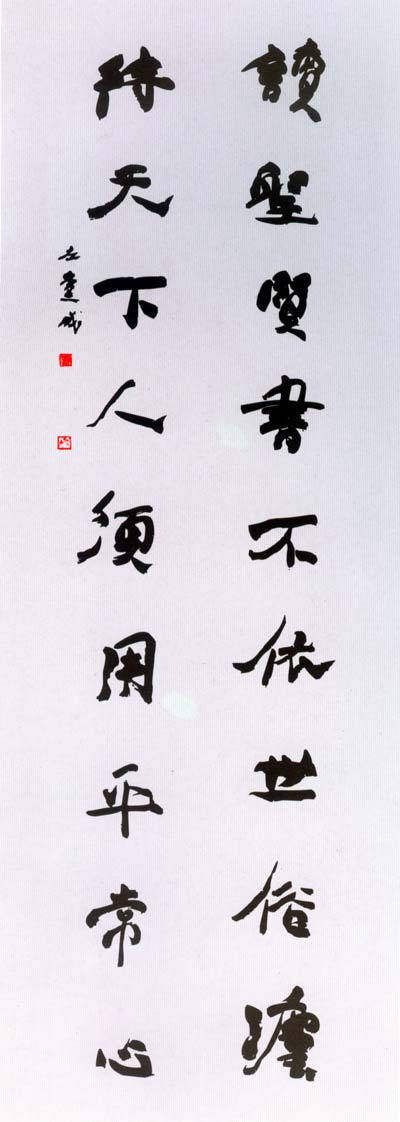 讀聖賢書不依世俗灋
待天下人須用平常心